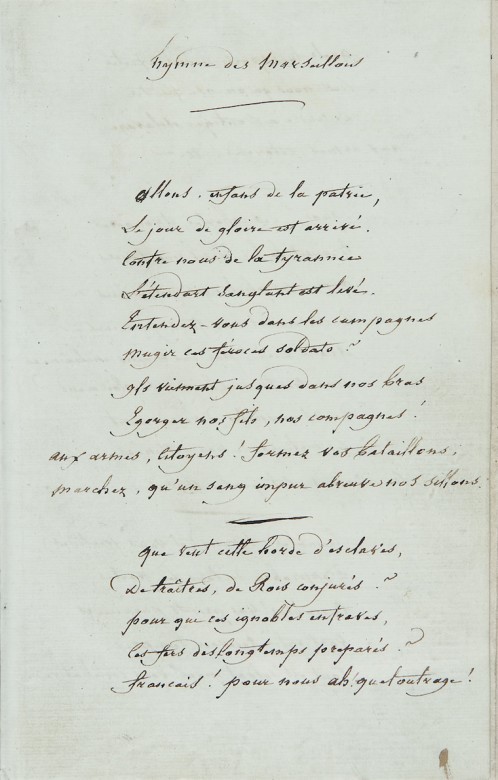 hymne des Marseillois
Allons, enfans de la patrie,
Le jour de gloire est arrivé.
Contre nous de la tyrannie
L'étendart sanglant est levé.
Entendez-vous dans les campagnes
Mugir ces féroces soldats ?
Ils viennent jusques dans nos bras
Egorger nos fils, nos compagnes !
aux armes, Citoyens ! formez vos bataillons,
marchez, qu'un sang impur abreuve nos sillons.
que veut cette horde d'esclaves,
De traîtres, de Rois conjurés ?
pour qui ces ignobles entraves,
Ces fers dès longtemps préparés ?
français ! pour nous ah ! quel outrage !